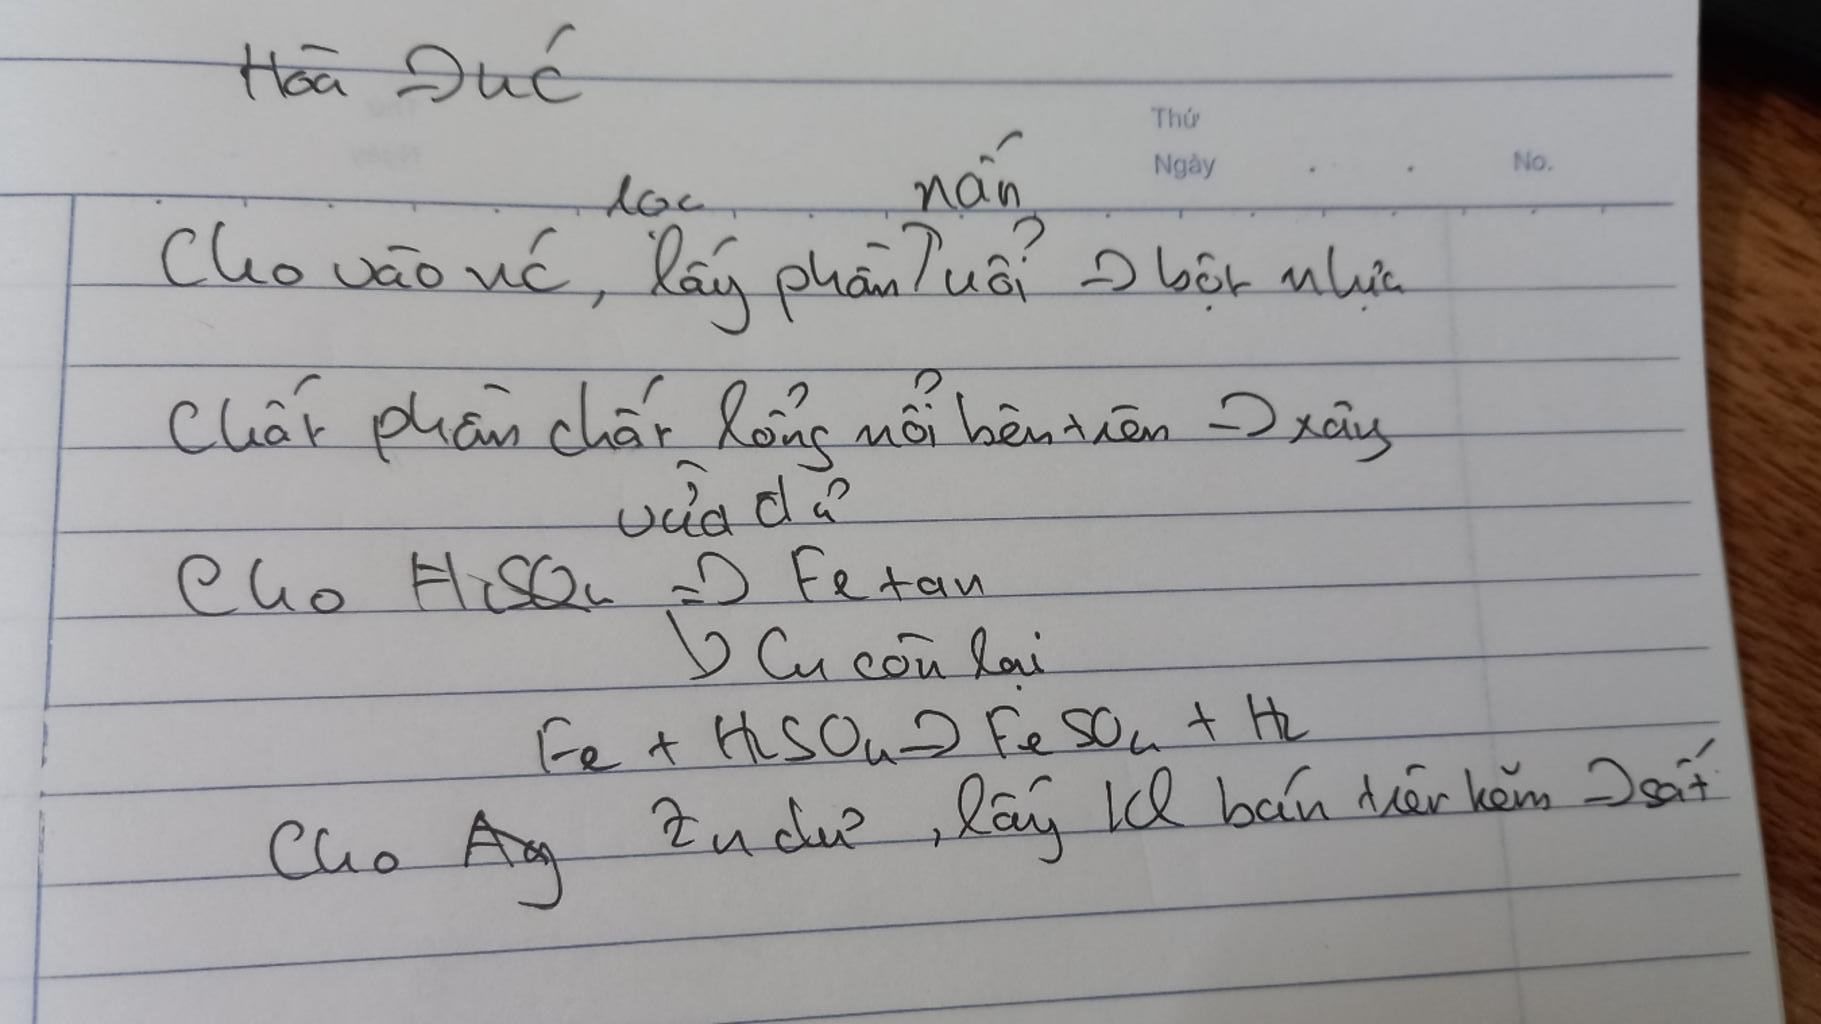 Hoà Đức
Thứ
Ngày . . No.
lọc rắn
Cho vào nć, lấy phần nổi → bột nhựa
Chắt phần chất lỏng nổi bên trên → xăng
vừa đủ
Cho H2SO4 => Fe tan
↳ Cu còn lại
Fe + H2SO4 → FeSO4 + H2
Cho Zn dư, lấy Kl bán trên kẽm → sắt